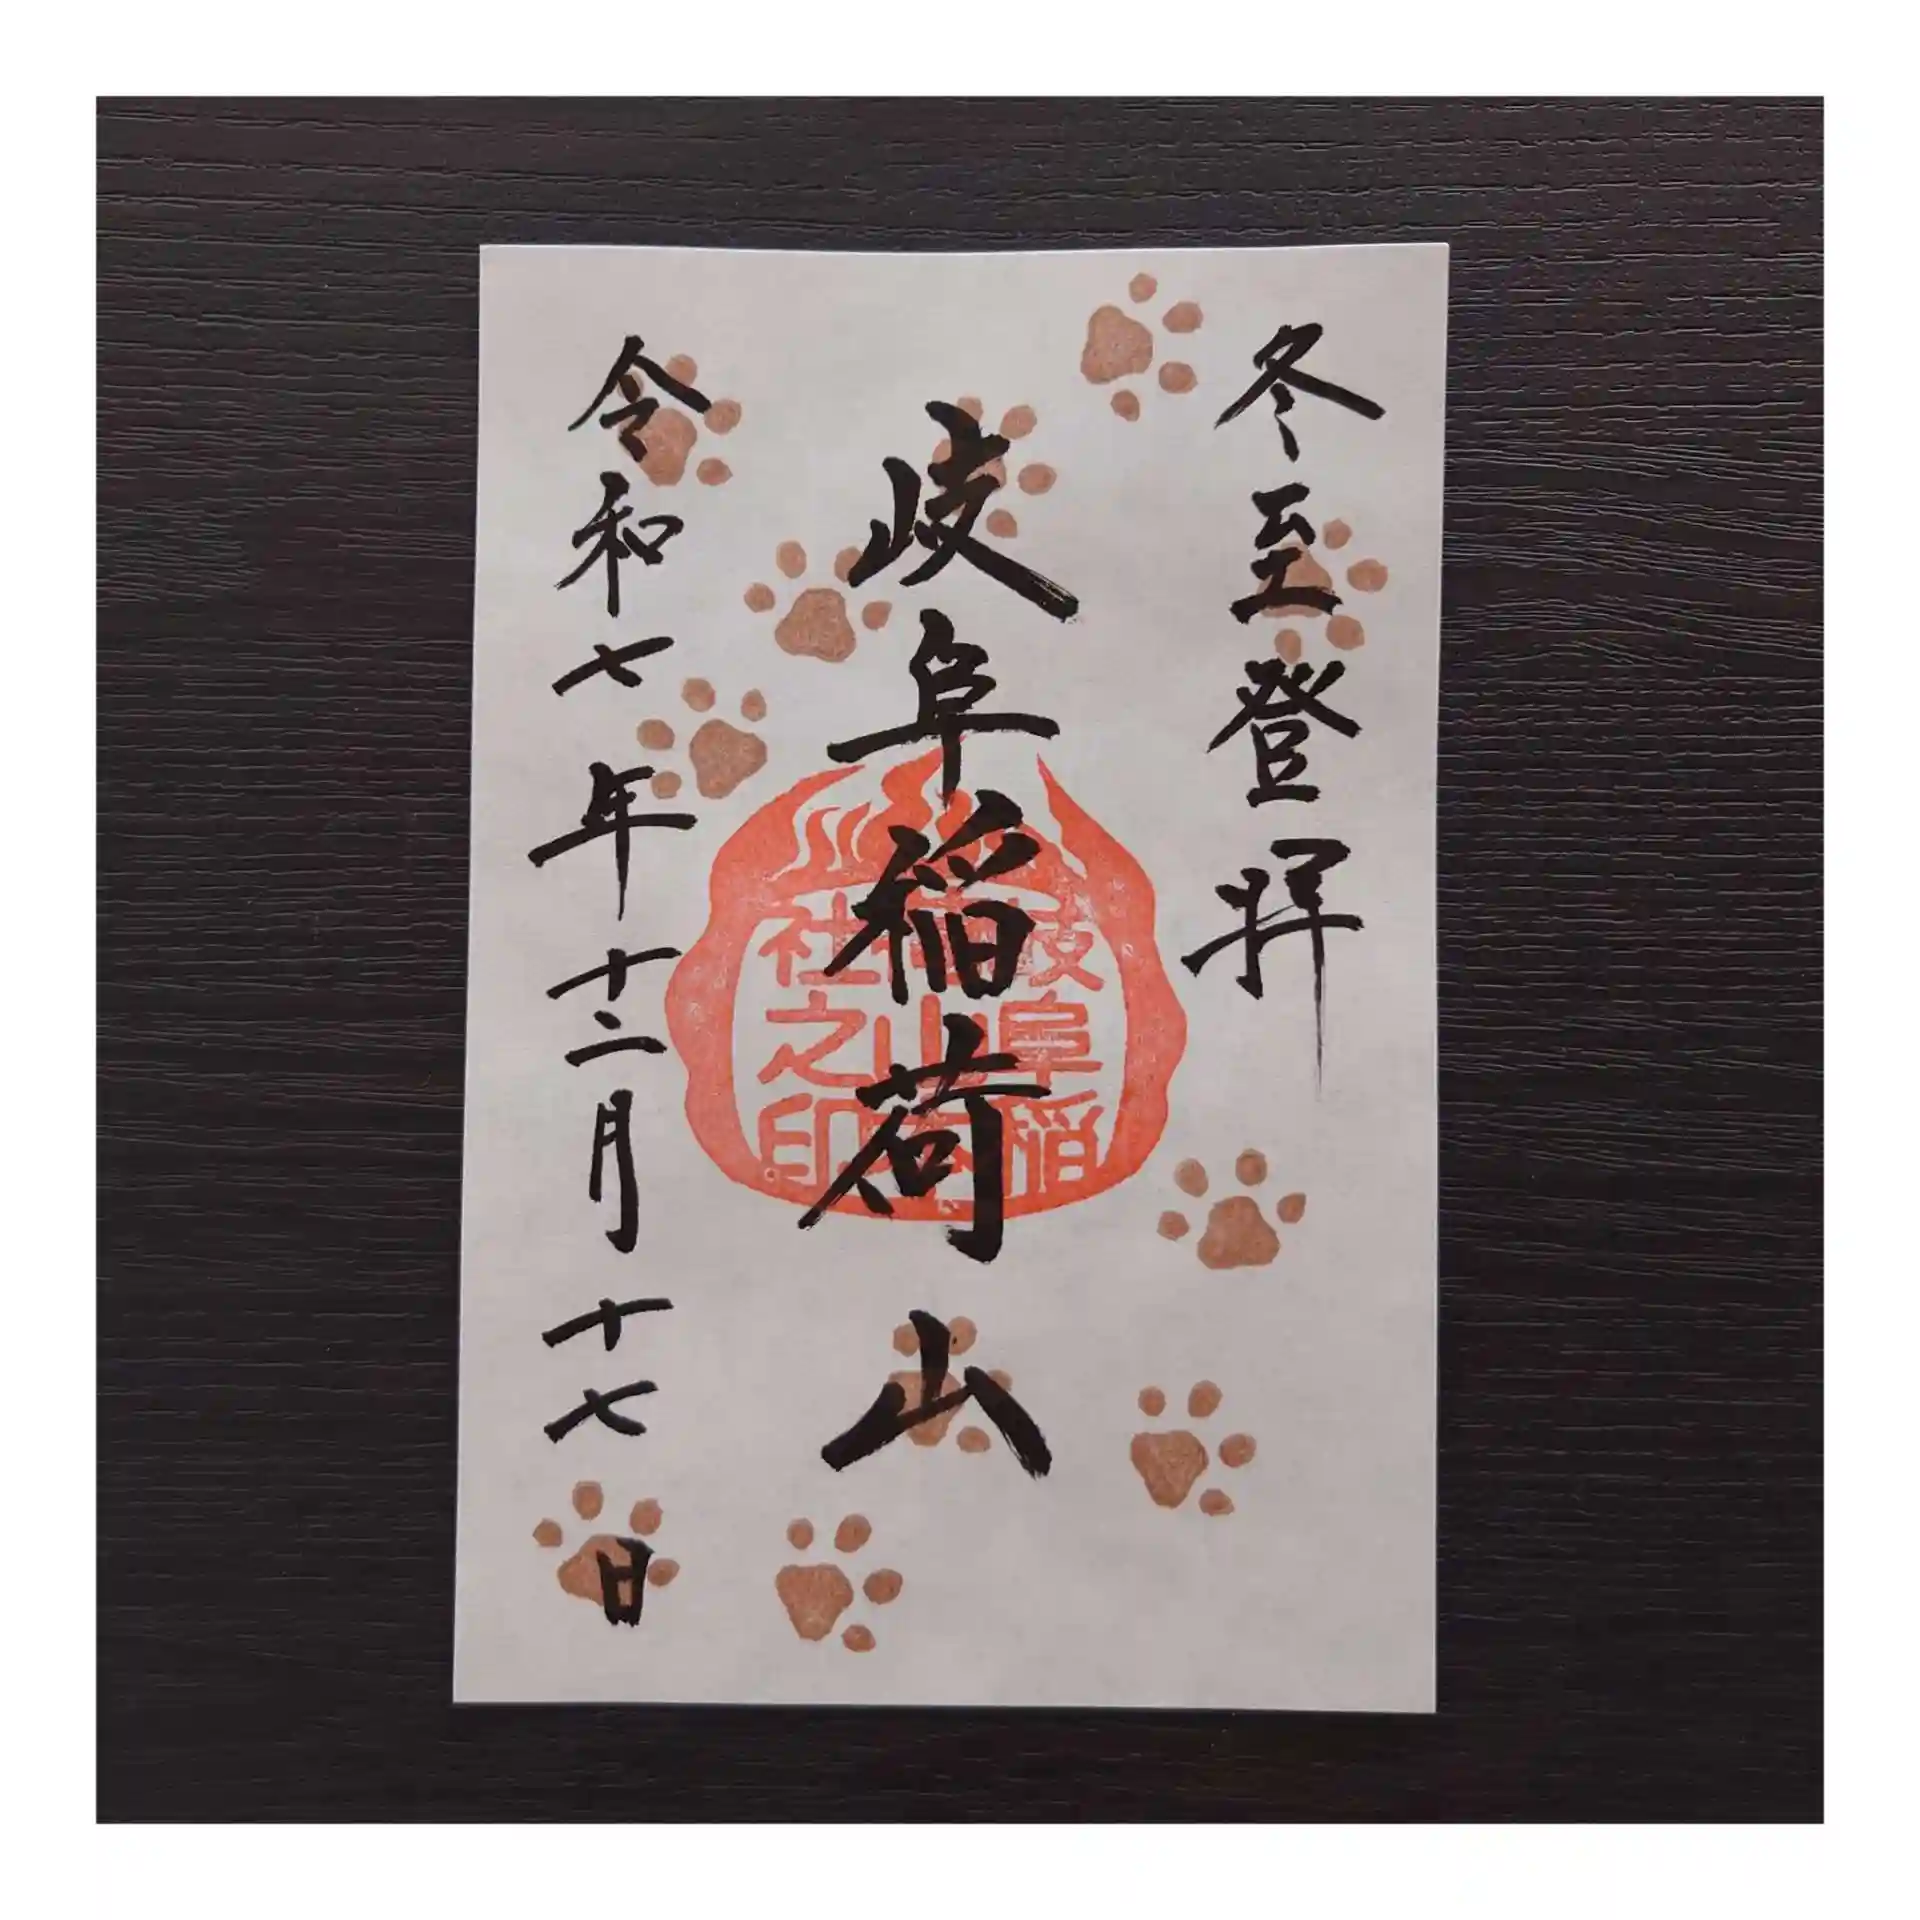 冬至登拝
岐阜稲荷山
岐阜稲
荷山本
社之印
令和七年十二月十七日